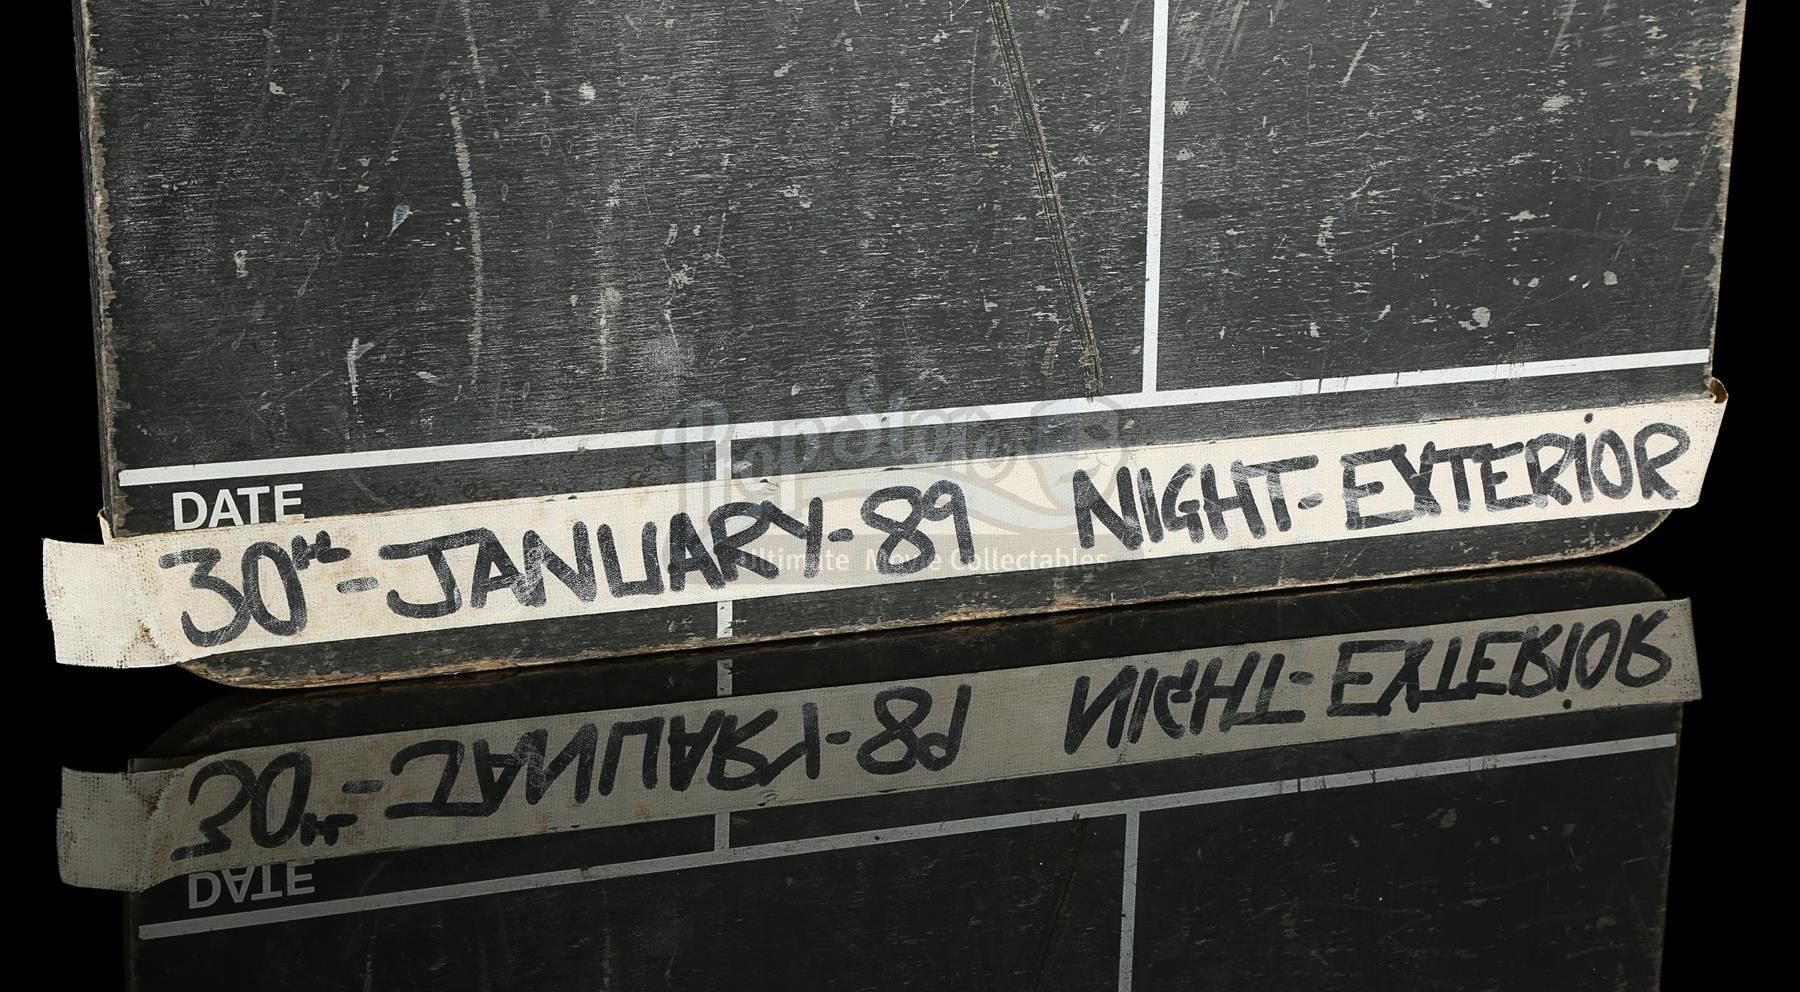 DATE
30th - JANUARY - 89 NIGHT - EXTERIOR
PropStore
Ultimate Movie Collectables